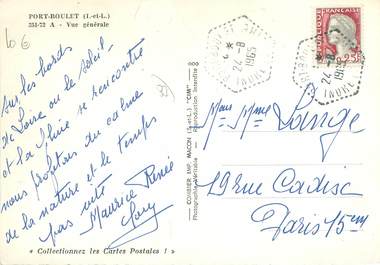 PORT-BOULET (I.-et-L.)
251-72 A - Vue générale
Sur les bords
de Loire ou le soleil
et la pluie se rencontre
nous profitons du calme
de la nature et le temps
pas vite
Maurice Renée
« Collectionnez les Cartes Postales ! »
COMBIER IMP. MACON (S.-et-L.) "CIM"
Photographie Véritable - Reproduction Interdite
24 -8
1965
INDRE
24 -8
1965
INDRE
0,25
Mr Mme Lange
19 rue Cadix
Paris 15em